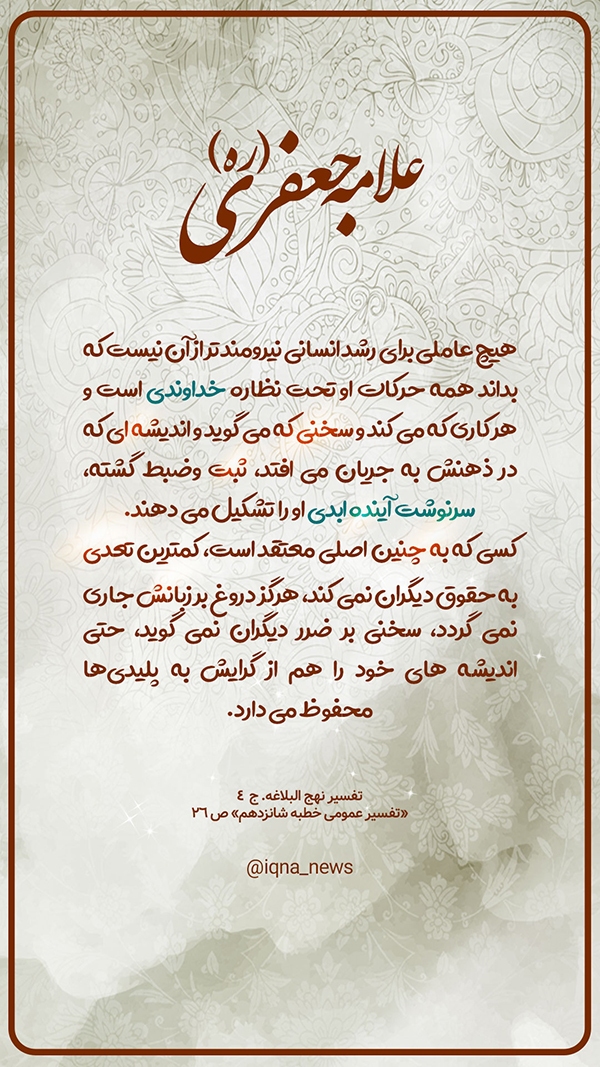 علامه جعفری (ره)
هیچ عاملی برای رشد انسانی نیرومندتر از آن نیست که
بداند همه حرکات او تحت نظاره خداوندی است و
هر کاری که می کند و سخنی که می گوید و اندیشه ای که
در ذهنش به جریان می افتد، ثبت وضبط گشته،
سرنوشت آینده ابدی او را تشکیل می دهند.
کسی که به چنین اصلی معتقد است، کمترین تعدی
به حقوق دیگران نمی کند، هرگز دروغ بر زبانش جاری
نمی گردد، سخنی بر ضرر دیگران نمی گوید، حتی
اندیشه های خود را هم از گرایش به پلیدی‌ها
محفوظ می دارد.
تفسیر نهج البلاغه. ج ٤
«تفسیر عمومی خطبه شانزدهم» ص ٢٦
@iqna_news